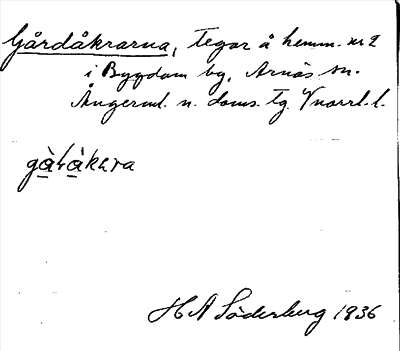 Gårdåkrarna, tegar å hemm. nr 2
i Bygdom by, Arnäs sn.
Ångerml. n. doms. tg. Vnorrl. l.
H A Söderberg 1936